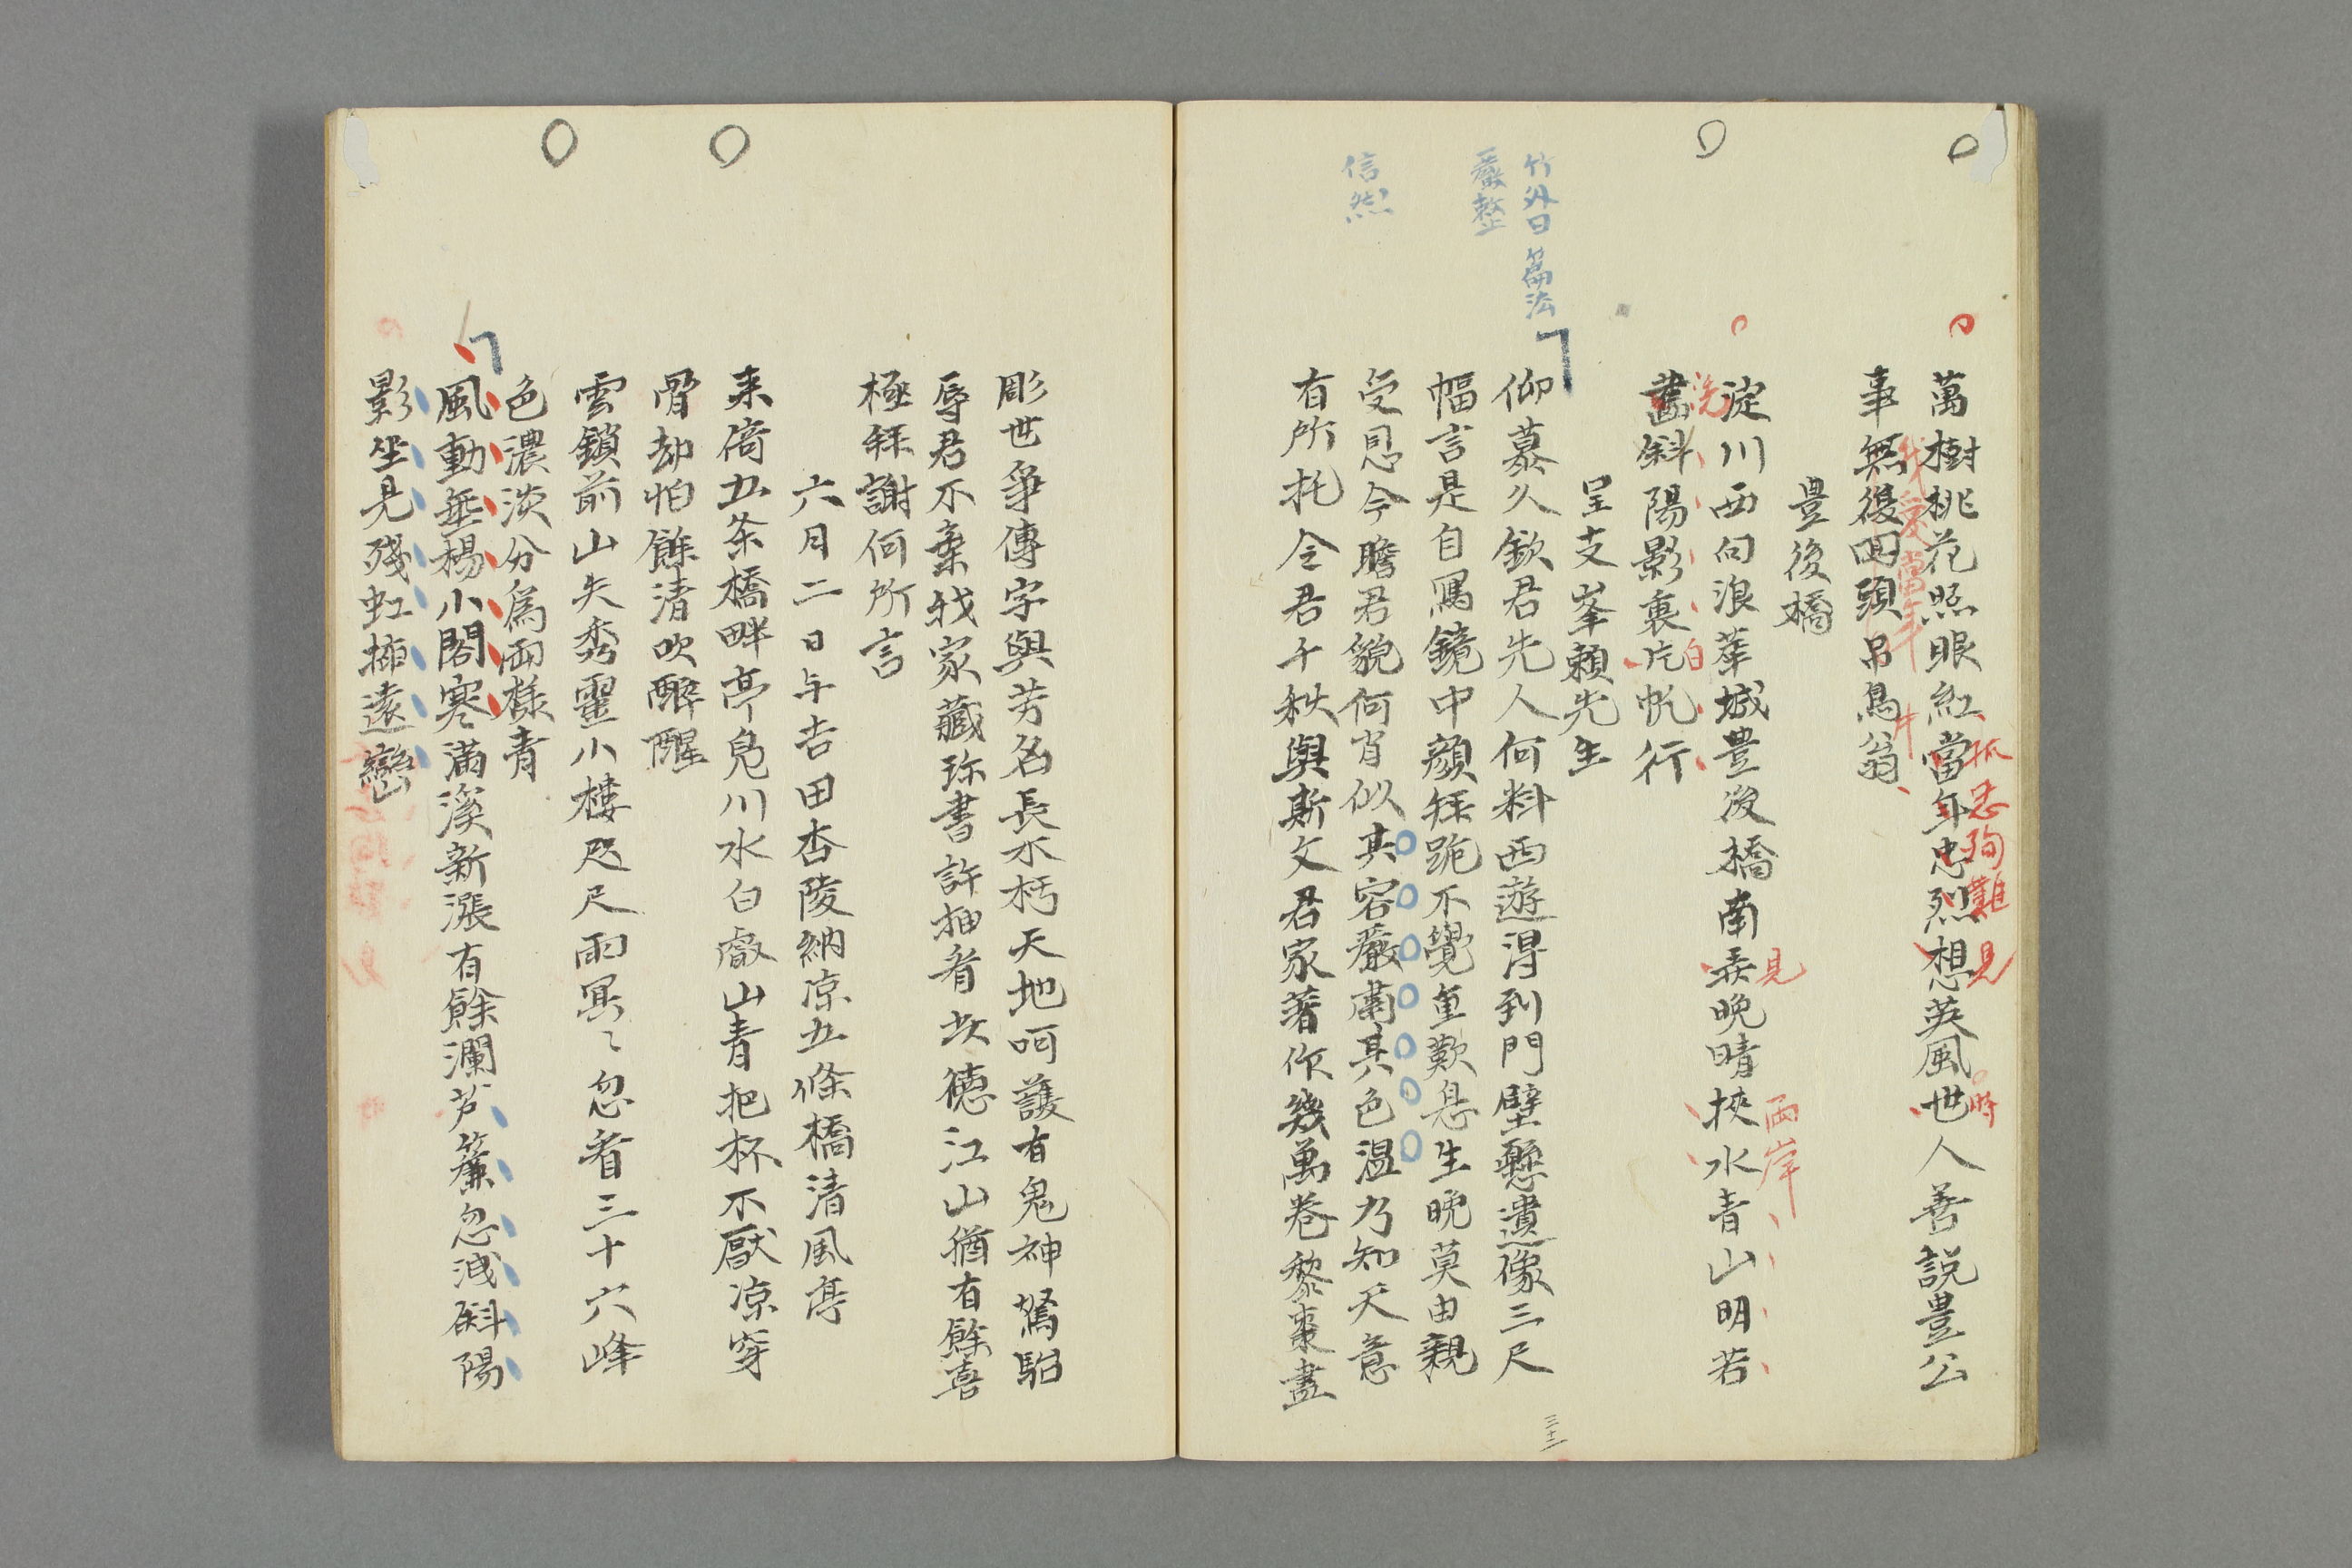 萬樹桃花照眼紅當年忠烈想英風世人善説豊公
孤忠殉難見
時
事無復回頭吊鳥翁
我愛當年
豊後橋
淀川西向浪華城豊後橋南弄晩晴挾水青山明若
見
兩岸
畵斜陽影裏片帆行
洗
白
呈支峯頼先生
竹外曰篇法
嚴整
仰慕久欽君先人何料西遊得到門壁懸遺像三尺
幅言是自冩鏡中顔拜跪不覺重歎息生晩莫由親
信然
受恩今瞻君貌何肖似其容嚴肅其色温乃知天意
有所托令君千秋與斯文君家著作幾萬卷黎棗盡
三十二
彫世爭傳字與芳名長不朽天地呵護有鬼神駑駘
辱君不棄我家藏珎書許抽看此德江山猶有餘喜
極拜謝何所言
六月二日与吉田杏陵納凉五條橋清風亭
来倚五条橋畔亭鳬川水白叡山青把杯不厭凉穿
骨却怕餘清吹醉醒
雲鎖前山失秀靈小樓咫尺雨冥々忽看三十六峰
色濃淡分爲兩樣青
風動垂楊小閣寒滿溪新漲有餘瀾芦簾忽淺斜陽
影坐見殘虹插遠巒